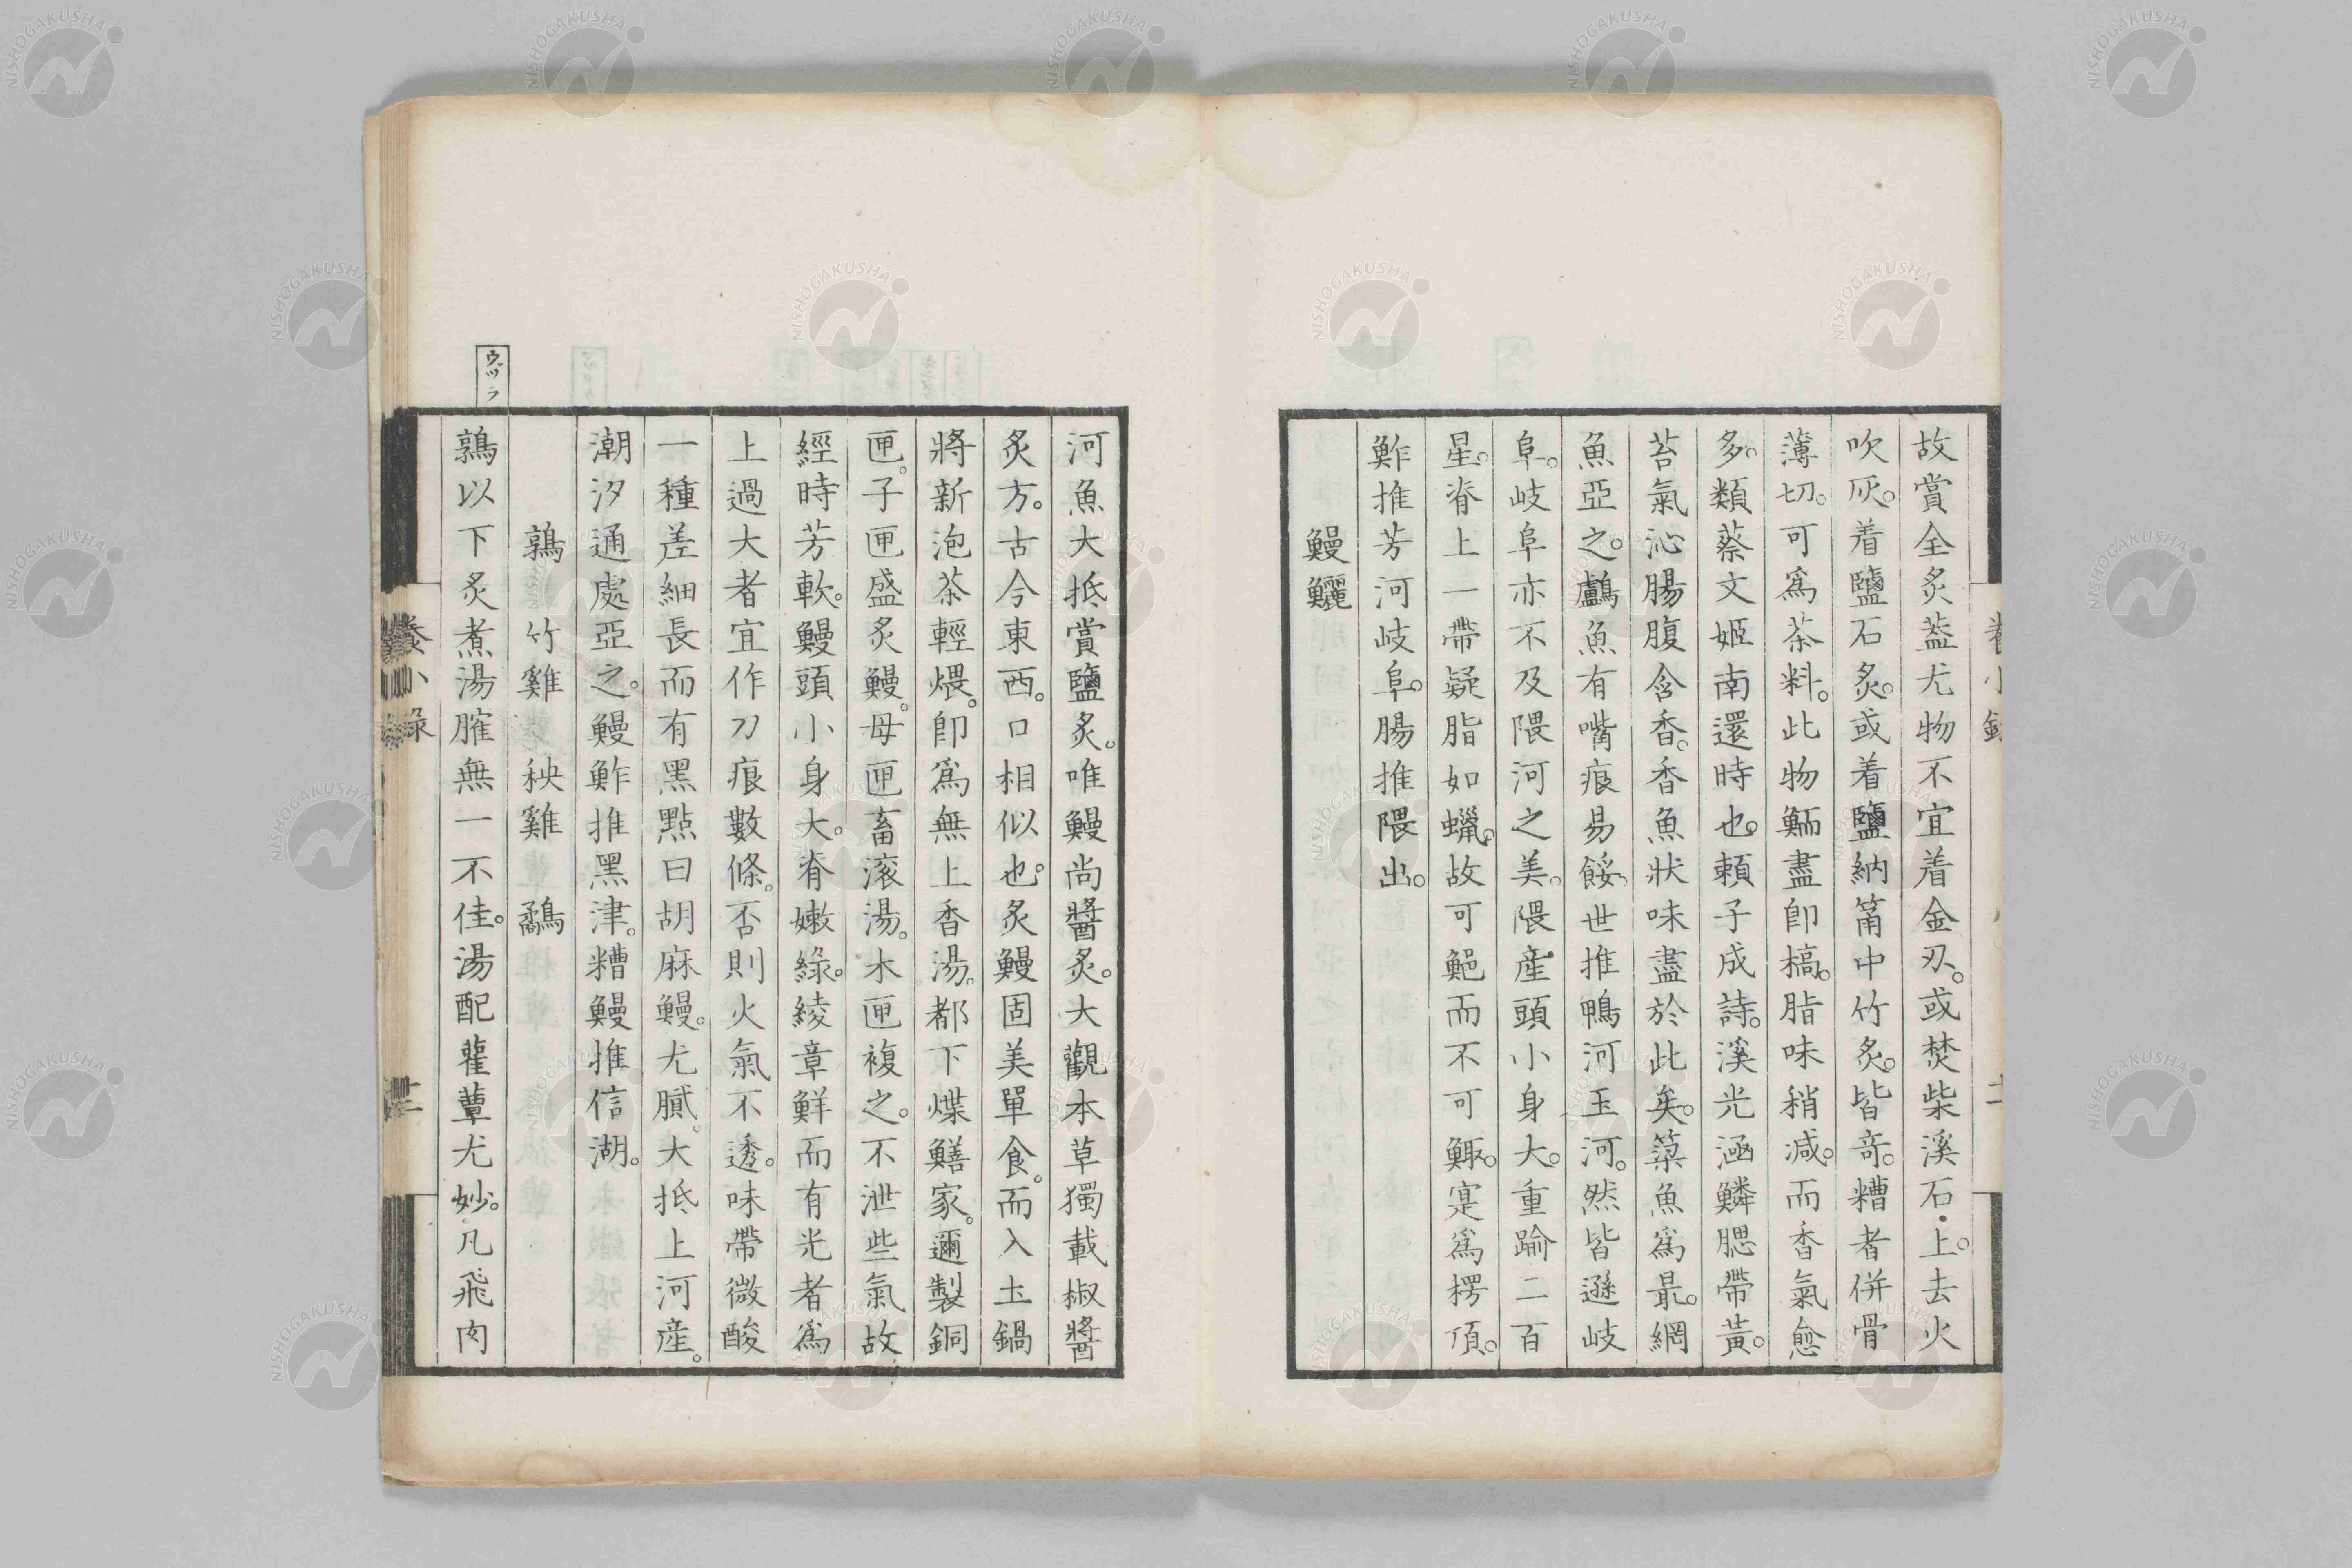 故賞全炙葢尤物不宜着金刃。或焚柴溪石。上去火
吹灰。着鹽石炙。或着鹽納筩中竹炙。皆奇。糟者併骨
薄切。可爲茶料。此物鮞盡卽槁。脂味稍减。而香氣愈
多。類蔡文姬南還時也。頼子成詩。溪光涵鱗腮帶黃。
苔氣沁腸腹含香。香魚狀味盡於此矣。簗魚爲最。網
魚亞之。鸕魚有嘴痕易餒。世推鴨河玉河。然皆遜岐
阜。岐阜亦不及隈河之美。隈產頭小身大。重踰二百
星。脊上一帶疑脂如蠟。故可鮑而不可鯫。寔爲楞頂。
鮓推芳河岐阜。腸推隈出。
鰻鱺
河魚大抵賞鹽炙。唯鰻尚醬炙。大觀本草獨載椒醬
炙方。古今東西。口相似也。炙鰻固美單食。而入土鍋
將新泡茶輕煨。卽爲無上香湯。都下煠鱔家。邇製銅
匣。子匣盛炙鰻。母匣畜滚湯。木匣複之。不泄些氣故
經時芳軟。鰻頭小身大。脊嫩綠。綾章鮮而有光者爲
上過大者宜作刀痕數條。否則火氣不透。味帶微酸
一種差細長而有黑點曰胡麻鰻。尤膩。大抵上河產。
潮汐通處亞之。鰻鮓推黑津。糟鰻推信湖。
鶉 竹雞 秧雞 鷸
鶉以下炙煮湯臛無一不佳。湯配雚蕈尤妙。凡飛肉
ウヅラ